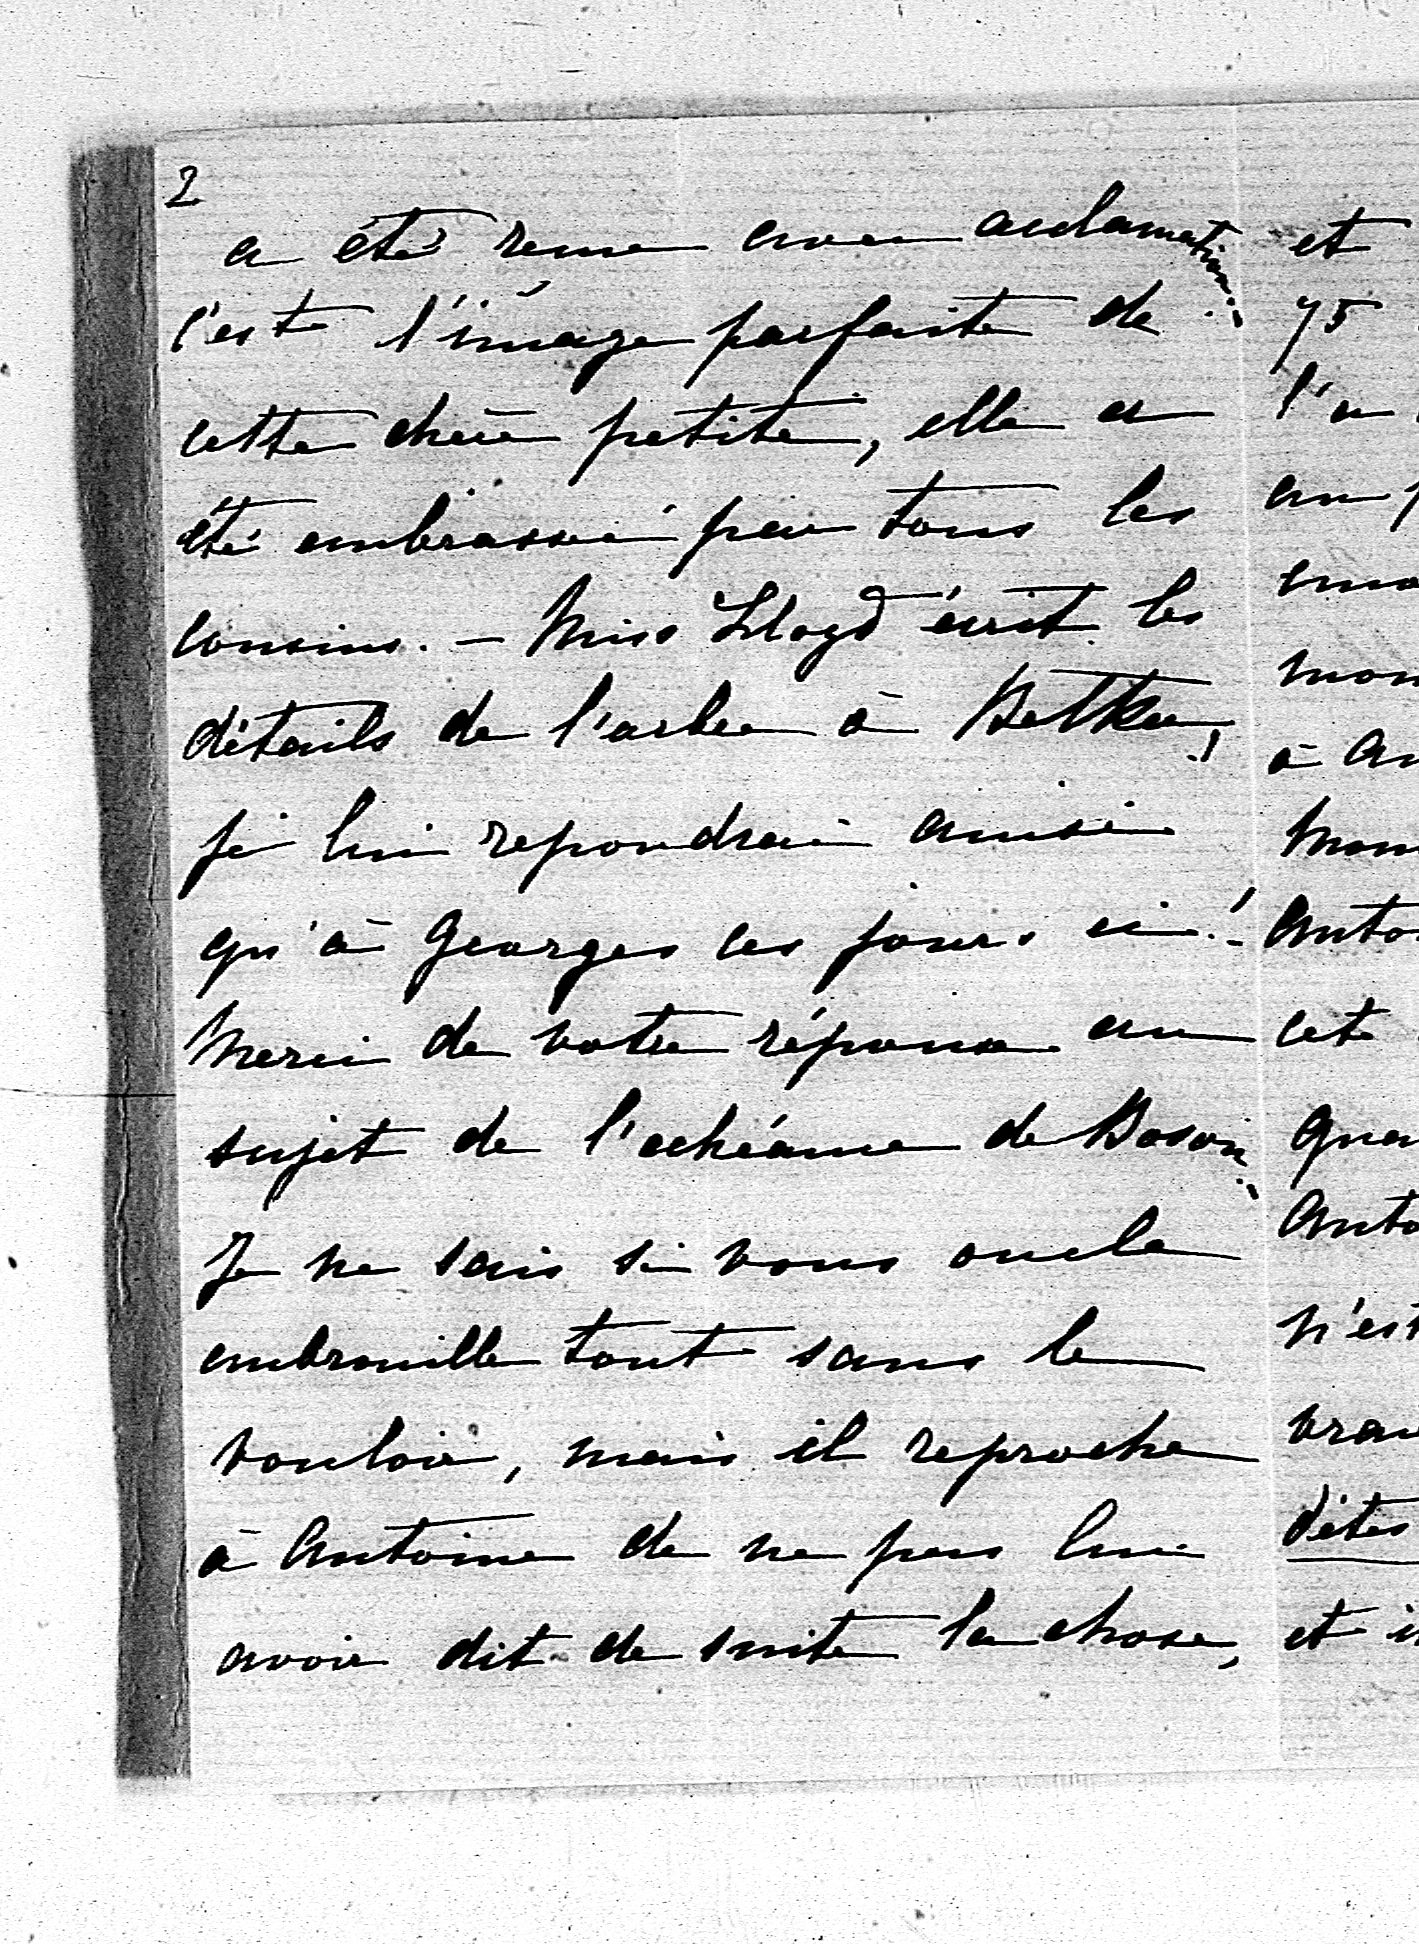 2
a été reçue avec acclamation..
c'est l'image parfaite de
cette chère petite, elle a
été embrassée par tous les
cousins. — Miss Lloyd écrit les
détails de l'arbre à
je lui repondrai ainsi
qu'à Georges ces jours ci! –
Merci de votre réponse au
sujet de l'echéance de
Je ne sais si vous oncle
embrouille tout sans le
vouloir, mais il reproche
à Antoine de ne pas lui
avoir dit de suite la chose,
et
75
l'a
mon
à
Anto
cet
Qua
Anto
n'est
dites
et